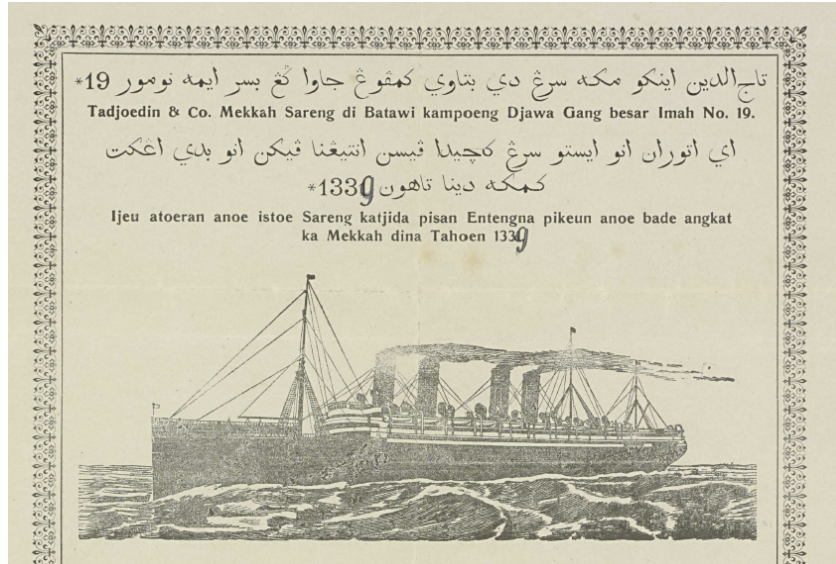 تاج الدين اينكو مكه سرڠ دي بتاوي كمڤوڠ جاوا ݢڠ بسر ايمه نومور 19*
Tadjoedin & Co. Mekkah Sareng di Batawi kampoeng Djawa Gang besar Imah No. 19.
اي اتوران انو ايستو سرڠ كچيدا ڤيسن انتيڠنا ڤيكن انو بدي اڠكت
كمكه دينا تاهون 1339*
Ijeu atoeran anoe istoe Sareng katjida pisan Entengna pikeun anoe bade angkat
ka Mekkah dina Tahoen 1339